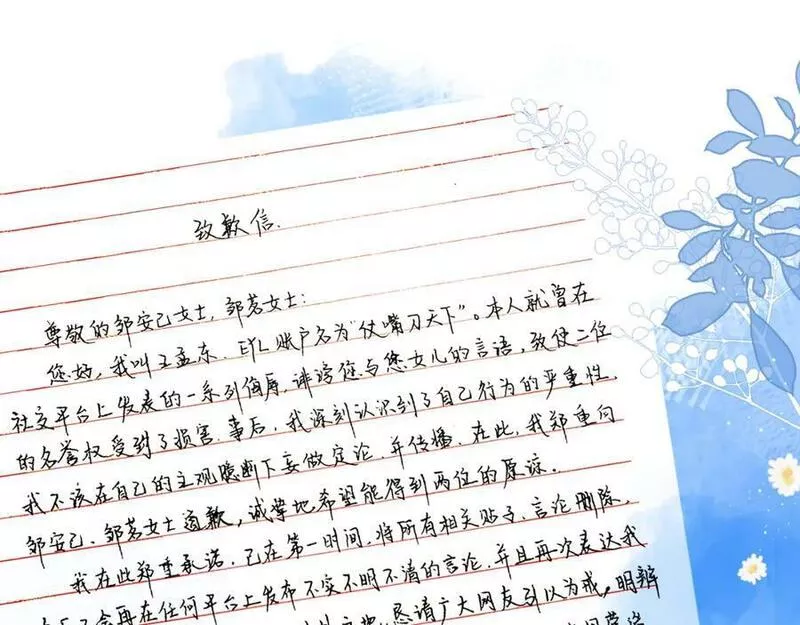 致歉信.
尊敬的邹安己女士,邹茗女士:
您好,我叫王孟东,EYL账户名为“仗嘴刃天下”。本人就曾在
社交平台上发表的一系列侮辱,诽谤您与您女儿的言语,致使二位
的名誉权受到了损害.事后,我深刻认识到了自己行为的严重性.
我不该在自己的主观臆断下妄做定论,并传播.在此,我郑重向
邹安己.邹茗女士道歉,诚挚地希望能得到两位的原谅。
我在此郑重承诺.已在第一时间,将所有相关贴子.言论删除.
会再在任何平台上发布不实不明不清的言论.并且再次表达我
恳请广大网友引以为戒,明辨